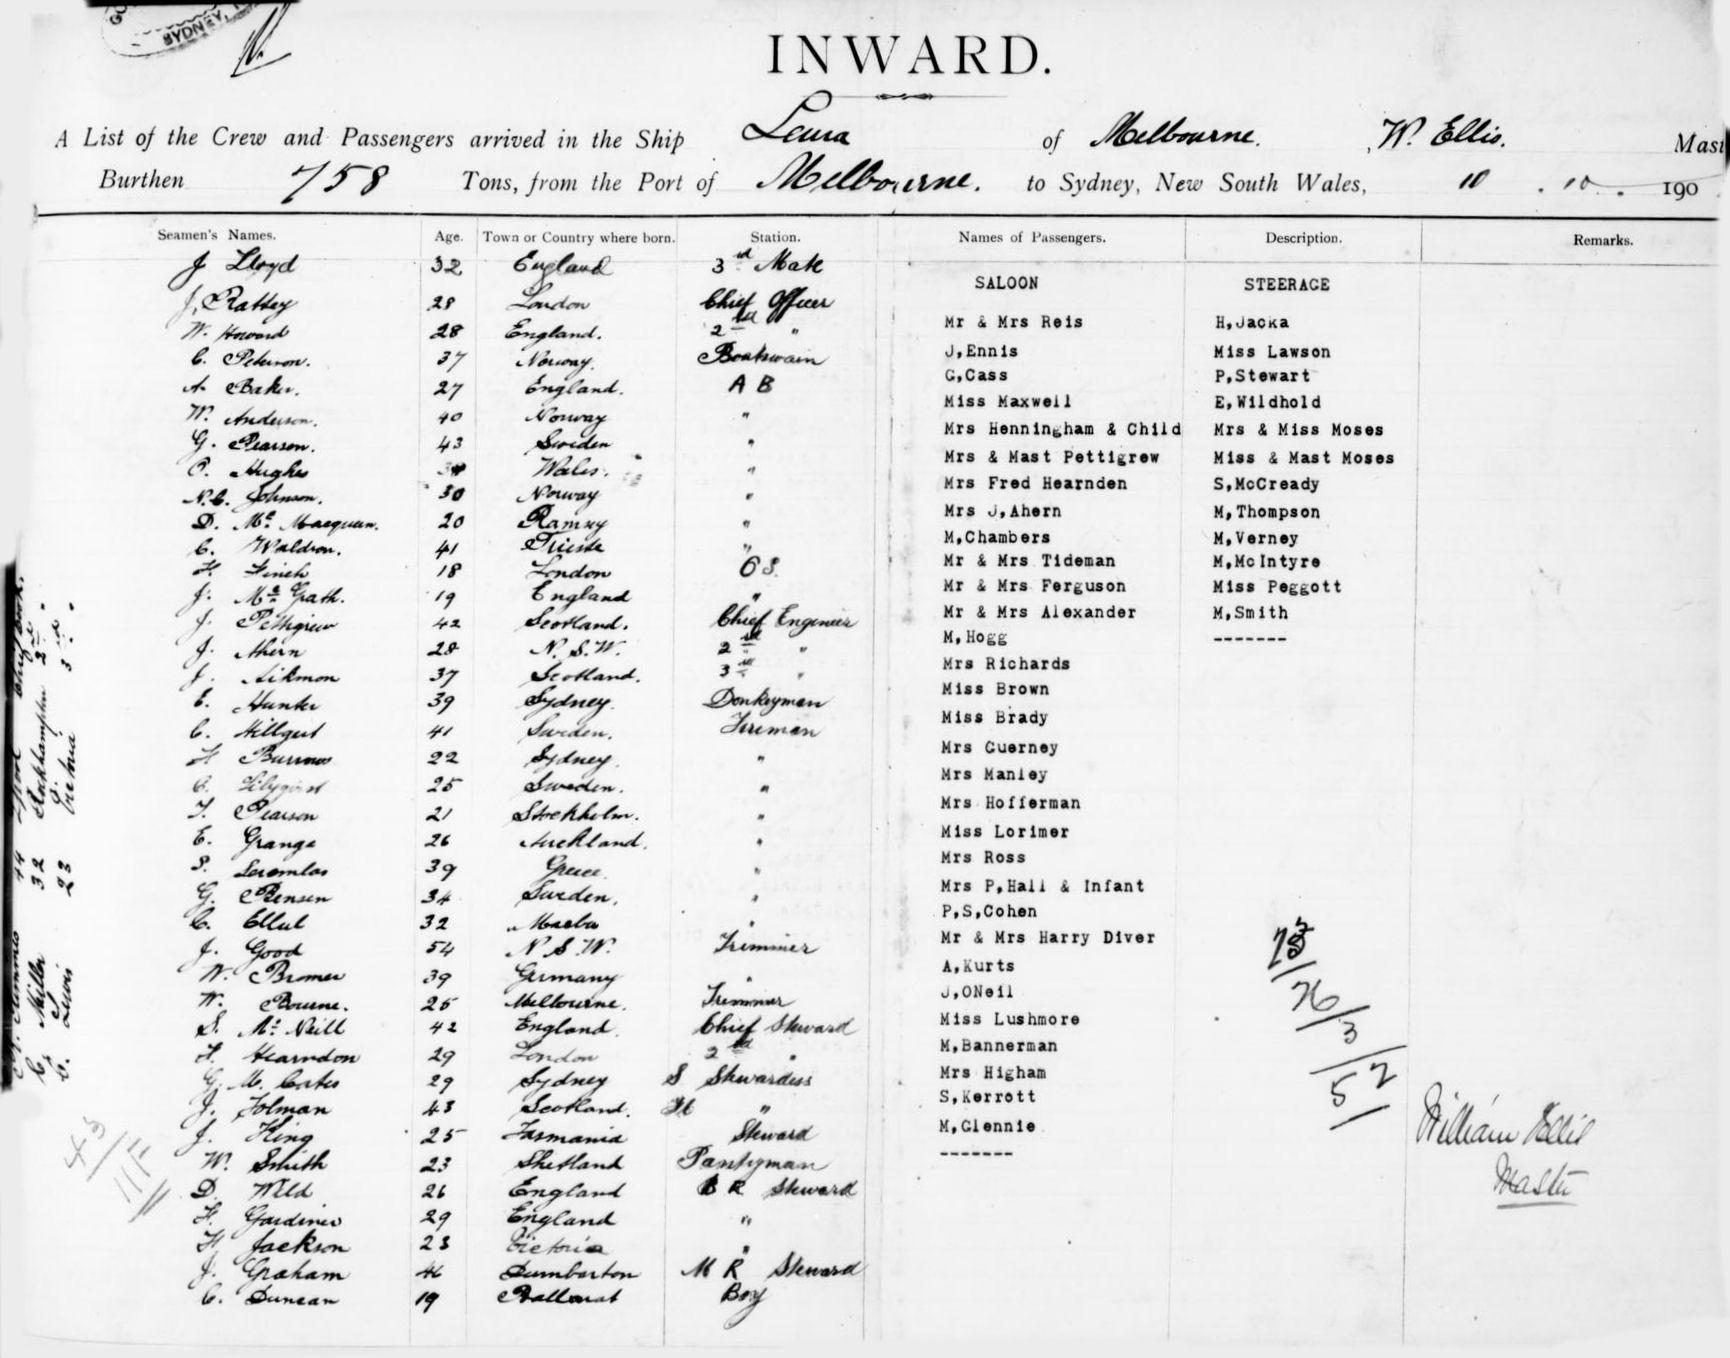 SYDNEY, N
INWARD.
A List of the Crew and Passengers arrived in the Ship Leura of Melbourne. W. Ellis. Mast
Burthen 758 Tons, from the Port of Melbourne. to Sydney, New South Wales, 10 . 10 . 190
Seamen's Names. Age. Town or Country where born. Station. Names of Passengers. Description. Remarks.
J Lloyd 32 England 3rd Mate
SALOON STEERAGE
J. Rattey 28 London Chief Officer
W. Howard 28 England. 2nd "
Mr & Mrs Reis H,Jacka
C. Peterson. 37 Norway. Boatswain
J,Ennis Miss Lawson
A. Baker. 27 England. A B
G,Cass P,Stewart
W. Anderson. 40 Norway "
Miss Maxwell E,Wildhold
G. Pearson. 43 Sweden "
Mrs Henningham & Child Mrs & Miss Moses
Hughes Wales. "
Mrs & Mast Pettigrew Miss & Mast Moses
N.C. Johnson. 30 Norway "
Mrs Fred Hearnden S,McCready
D. Mc Macqueen. 20 Ramsey "
Mrs J,Ahern M,Thompson
C. Waldron. 41 Trieste "
M,Chambers M,Verney
F. Finch 18 London O S.
Mr & Mrs Tideman M,McIntyre
J. Mc Grath. 19 England "
Mr & Mrs Ferguson Miss Peggott
J. Pettigrew 42 Scotland. Chief Engineer
Mr & Mrs Alexander M,Smith
J. Ahern 28 N.S.W. 2nd "
M,Hogg -------
J. Aikmon 37 Scotland. 3rd "
Mrs Richards
E. Hunter 39 Sydney. Donkeyman
Miss Brown
C. Hillgut 41 Sweden. Fireman
Miss Brady
H Burrows 22 Sydney. "
Mrs Guerney
C. 25 Sweden. "
Mrs Manley
T. Pearson 21 Stockholm. "
Mrs Hofferman
E. Grange 26 Auckland. "
Miss Lorimer
S. 39 Greece. "
Mrs Ross
G. Bensen 34 Sweden. "
Mrs P,Hall & Infant
C. Ellul 32 "
P,S,Cohen
J. Good 54 N.S.W. Trimmer
Mr & Mrs Harry Diver
W. Bromer 39 Germany "
A,Kurts
W. Bourne. 25 Melbourne. Trimmer
J,ONeil
S. Mc Neill 42 England. Chief Steward
Miss Lushmore
F. Hearndon 29 London 2nd "
M,Bannerman
G. M. Cates 29 Sydney S Stewardess
Mrs Higham
J. Tolman 43 Scotland. "
S,Kerrott
J. King 25 Tasmania Steward
M,Glennie
W. Smith 23 Shetland Pantryman
-------
D. Wild 26 England B R Steward
F. Gardiner 29 England "
H. Jackson 23 Victoria "
J. Graham 46 Dumbarton M R Steward
C. Duncan 19 Ballarat Boy
44 Chief Cook.
C. Miller 32 Rockhampton 2nd "
C. Lewis 23 Victoria 3rd "
43
11F
76/3
5/2
William Ellis
Master